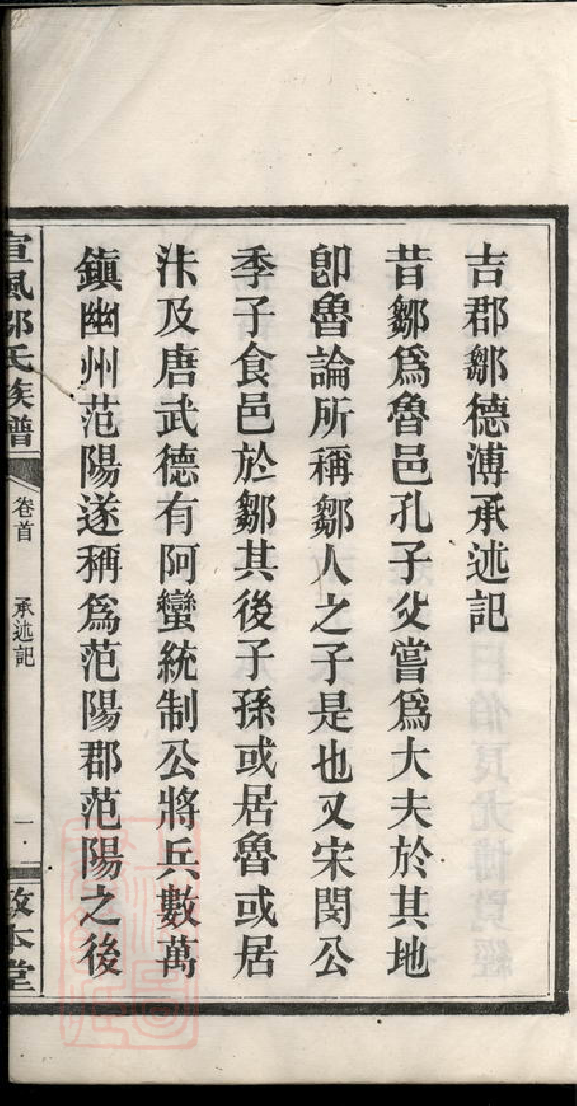 吉郡鄒德溥承述記
昔鄒爲魯邑孔子父嘗爲大夫於其地
卽魯論所稱鄒人之子是也又宋閔公
季子食邑於鄒其後子孫或居魯或居
汴及唐武德有阿蠻統制公將兵數萬
鎮幽州范陽遂稱爲范陽郡范陽之後
宣風鄒氏族譜
卷首
承述記
一
敦本堂